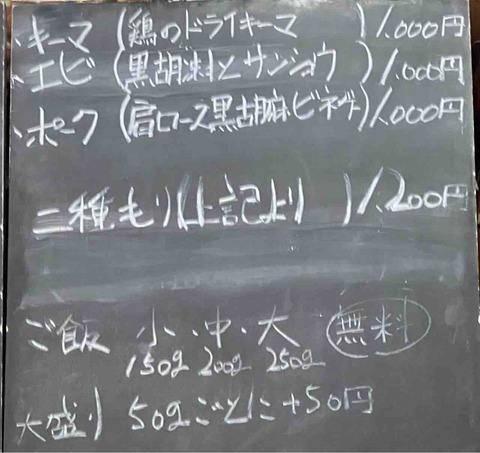 ・キーマ(鶏のドライキーマ)1.000円
・エビ(黒胡椒とサンショウ)1.000円
・ポーク(肩ロース黒胡麻ビネガー)1.000円
二種もり(上記より)1.200円
ご飯 小・中・大 無料
150g 200g 250g
大盛り 50gごとに+50円